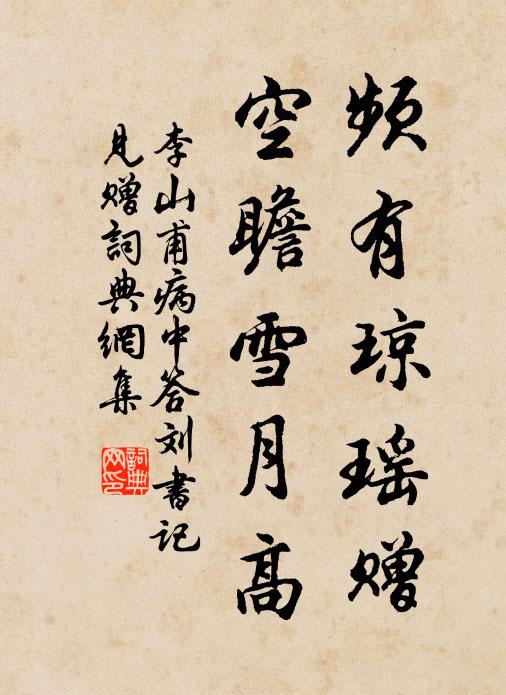 频有琼瑶赠
空瞻雪月高
李山甫病中答刘书记
见赠詞典網集
詞典网印